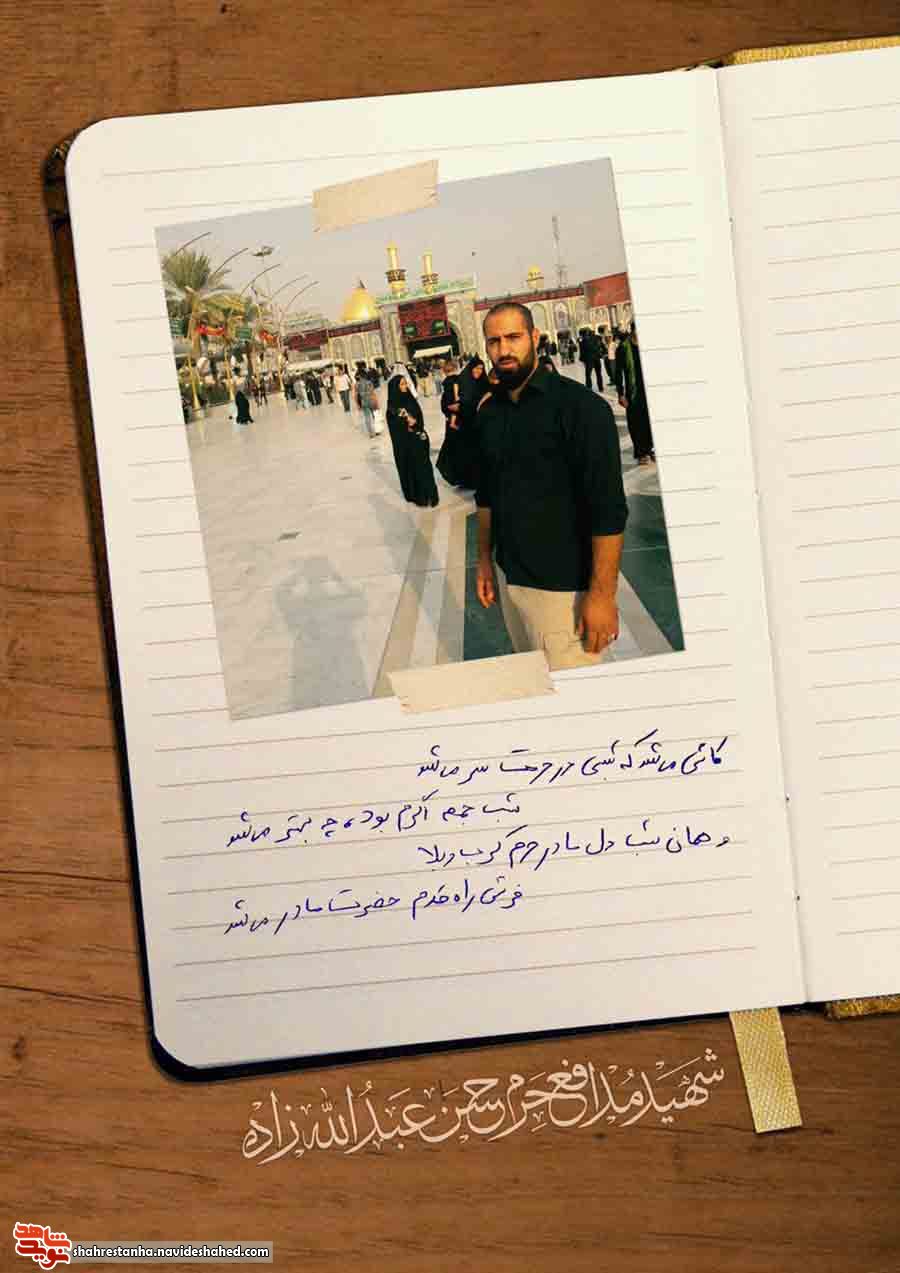 کاش می‌شد که شبی در حرمت سر می‌شد
شب جمعه اگرم بود، چه بهتر می‌شد
و همان شب دل ما در حرم کرب و بلا
فرش راه قدم حضرت مادر می‌شد
شهید مدافع حرم حسن عبدالله زاده
نوید شاهد
shahrestanha.navideshahed.com